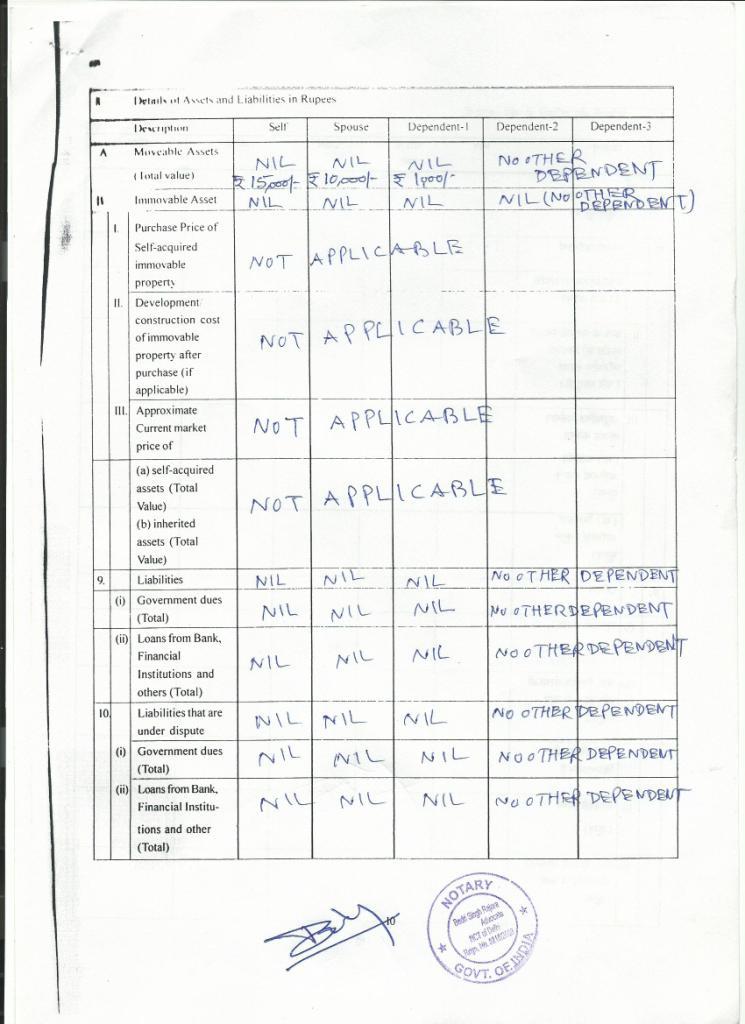 8 Details of Assets and Liabilities in Rupees
Description Self Spouse Dependent-1 Dependent-2 Dependent-3
A Moveable Assets NIL NIL NIL NO OTHER
(Total value) ₹ 15,000/- ₹ 10,000/- ₹ 1,000/- DEPENDENT
B Immovable Asset NIL NIL NIL NIL (NO OTHER
DEPENDENT)
I. Purchase Price of
Self-acquired NOT APPLICABLE
immovable
property
II. Development/
construction cost
of immovable NOT APPLICABLE
property after
purchase (if
applicable)
III. Approximate
Current market NOT APPLICABLE
price of
(a) self-acquired
assets (Total NOT APPLICABLE
Value)
(b) inherited
assets (Total
Value)
9. Liabilities NIL NIL NIL NO OTHER DEPENDENT
(i) Government dues NIL NIL NIL NO OTHER DEPENDENT
(Total)
(ii) Loans from Bank,
Financial NIL NIL NIL NO OTHER DEPENDENT
Institutions and
others (Total)
10. Liabilities that are NIL NIL NIL NO OTHER DEPENDENT
under dispute
(i) Government dues NIL NIL NIL NO OTHER DEPENDENT
(Total)
(ii) Loans from Bank, NIL NIL NIL NO OTHER DEPENDENT
Financial Institu-
tions and other
(Total)
10
NOTARY
Advocate
NCT of Delhi
GOVT. OF INDIA